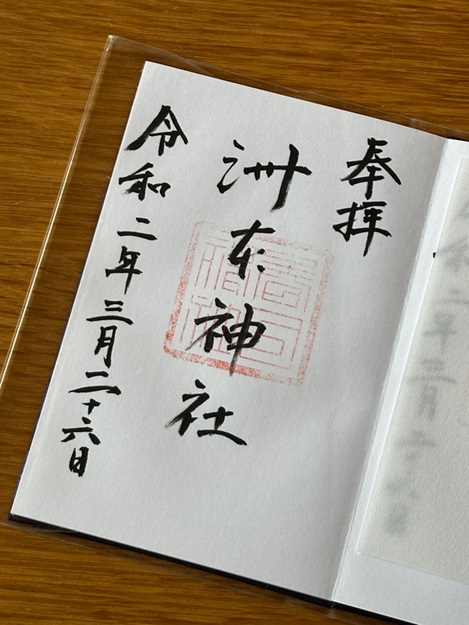 奉拝
洲本神社
令和二年三月二十六日